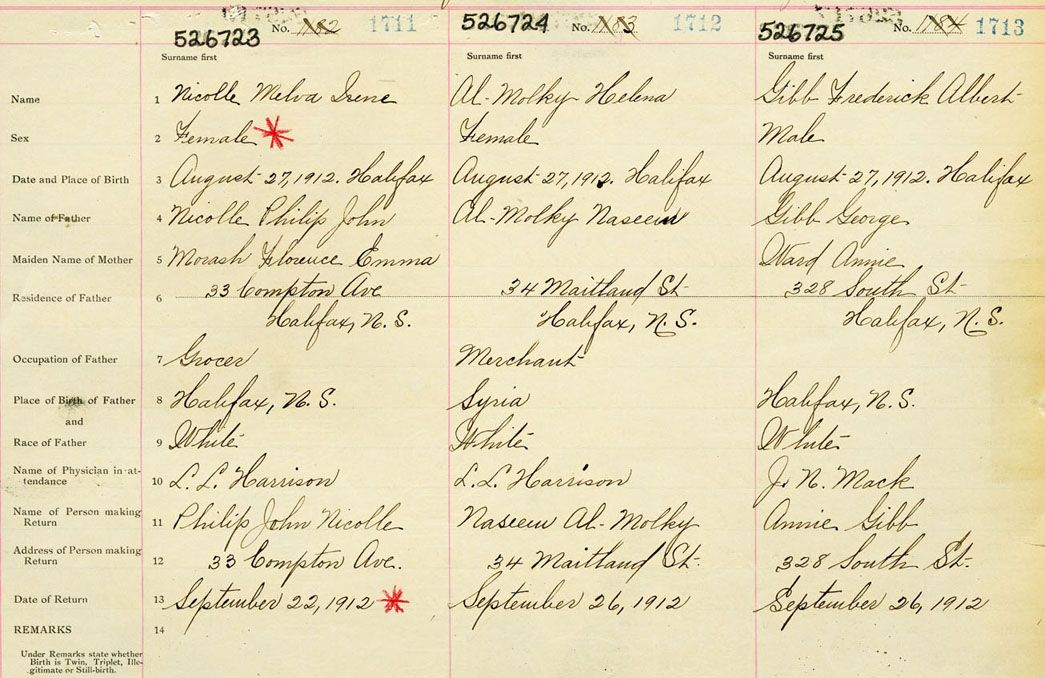 526723 No. 1182 1711 526724 No. 1183 1712 526725 No. 1184 1713
Surname first Surname first Surname first
Name 1 Nicolle Melva Irene Al-Molky Helena Gibb Frederick Albert
Sex 2 Female * Female Male
Date and Place of Birth 3 August 27, 1912. Halifax August 27, 1912. Halifax August 27, 1912. Halifax
Name of Father 4 Nicolle Philip John Al-Molky Naseem Gibb George
Maiden Name of Mother 5 Morash Florence Emma Ward Annie
Residence of Father 6 33 Compton Ave 34 Maitland St- 328 South St-
Halifax, N.S. Halifax, N.S. Halifax, N.S.
Occupation of Father 7 Grocer Merchant
Place of Birth of Father 8 Halifax, N.S. Syria Halifax, N.S.
and
Race of Father 9 White White White
Name of Physician in at-
tendance 10 L. L. Harrison L. L. Harrison J. N. Mack
Name of Person making
Return 11 Philip John Nicolle Naseem Al-Molky Annie Gibb
Address of Person making
Return 12 33 Compton Ave. 34 Maitland St. 328 South St.
Date of Return 13 September 22, 1912 * September 26, 1912 September 26, 1912
REMARKS 14
Under Remarks state whether
Birth is Twin, Triplet, Ille-
gitimate or Still-birth.